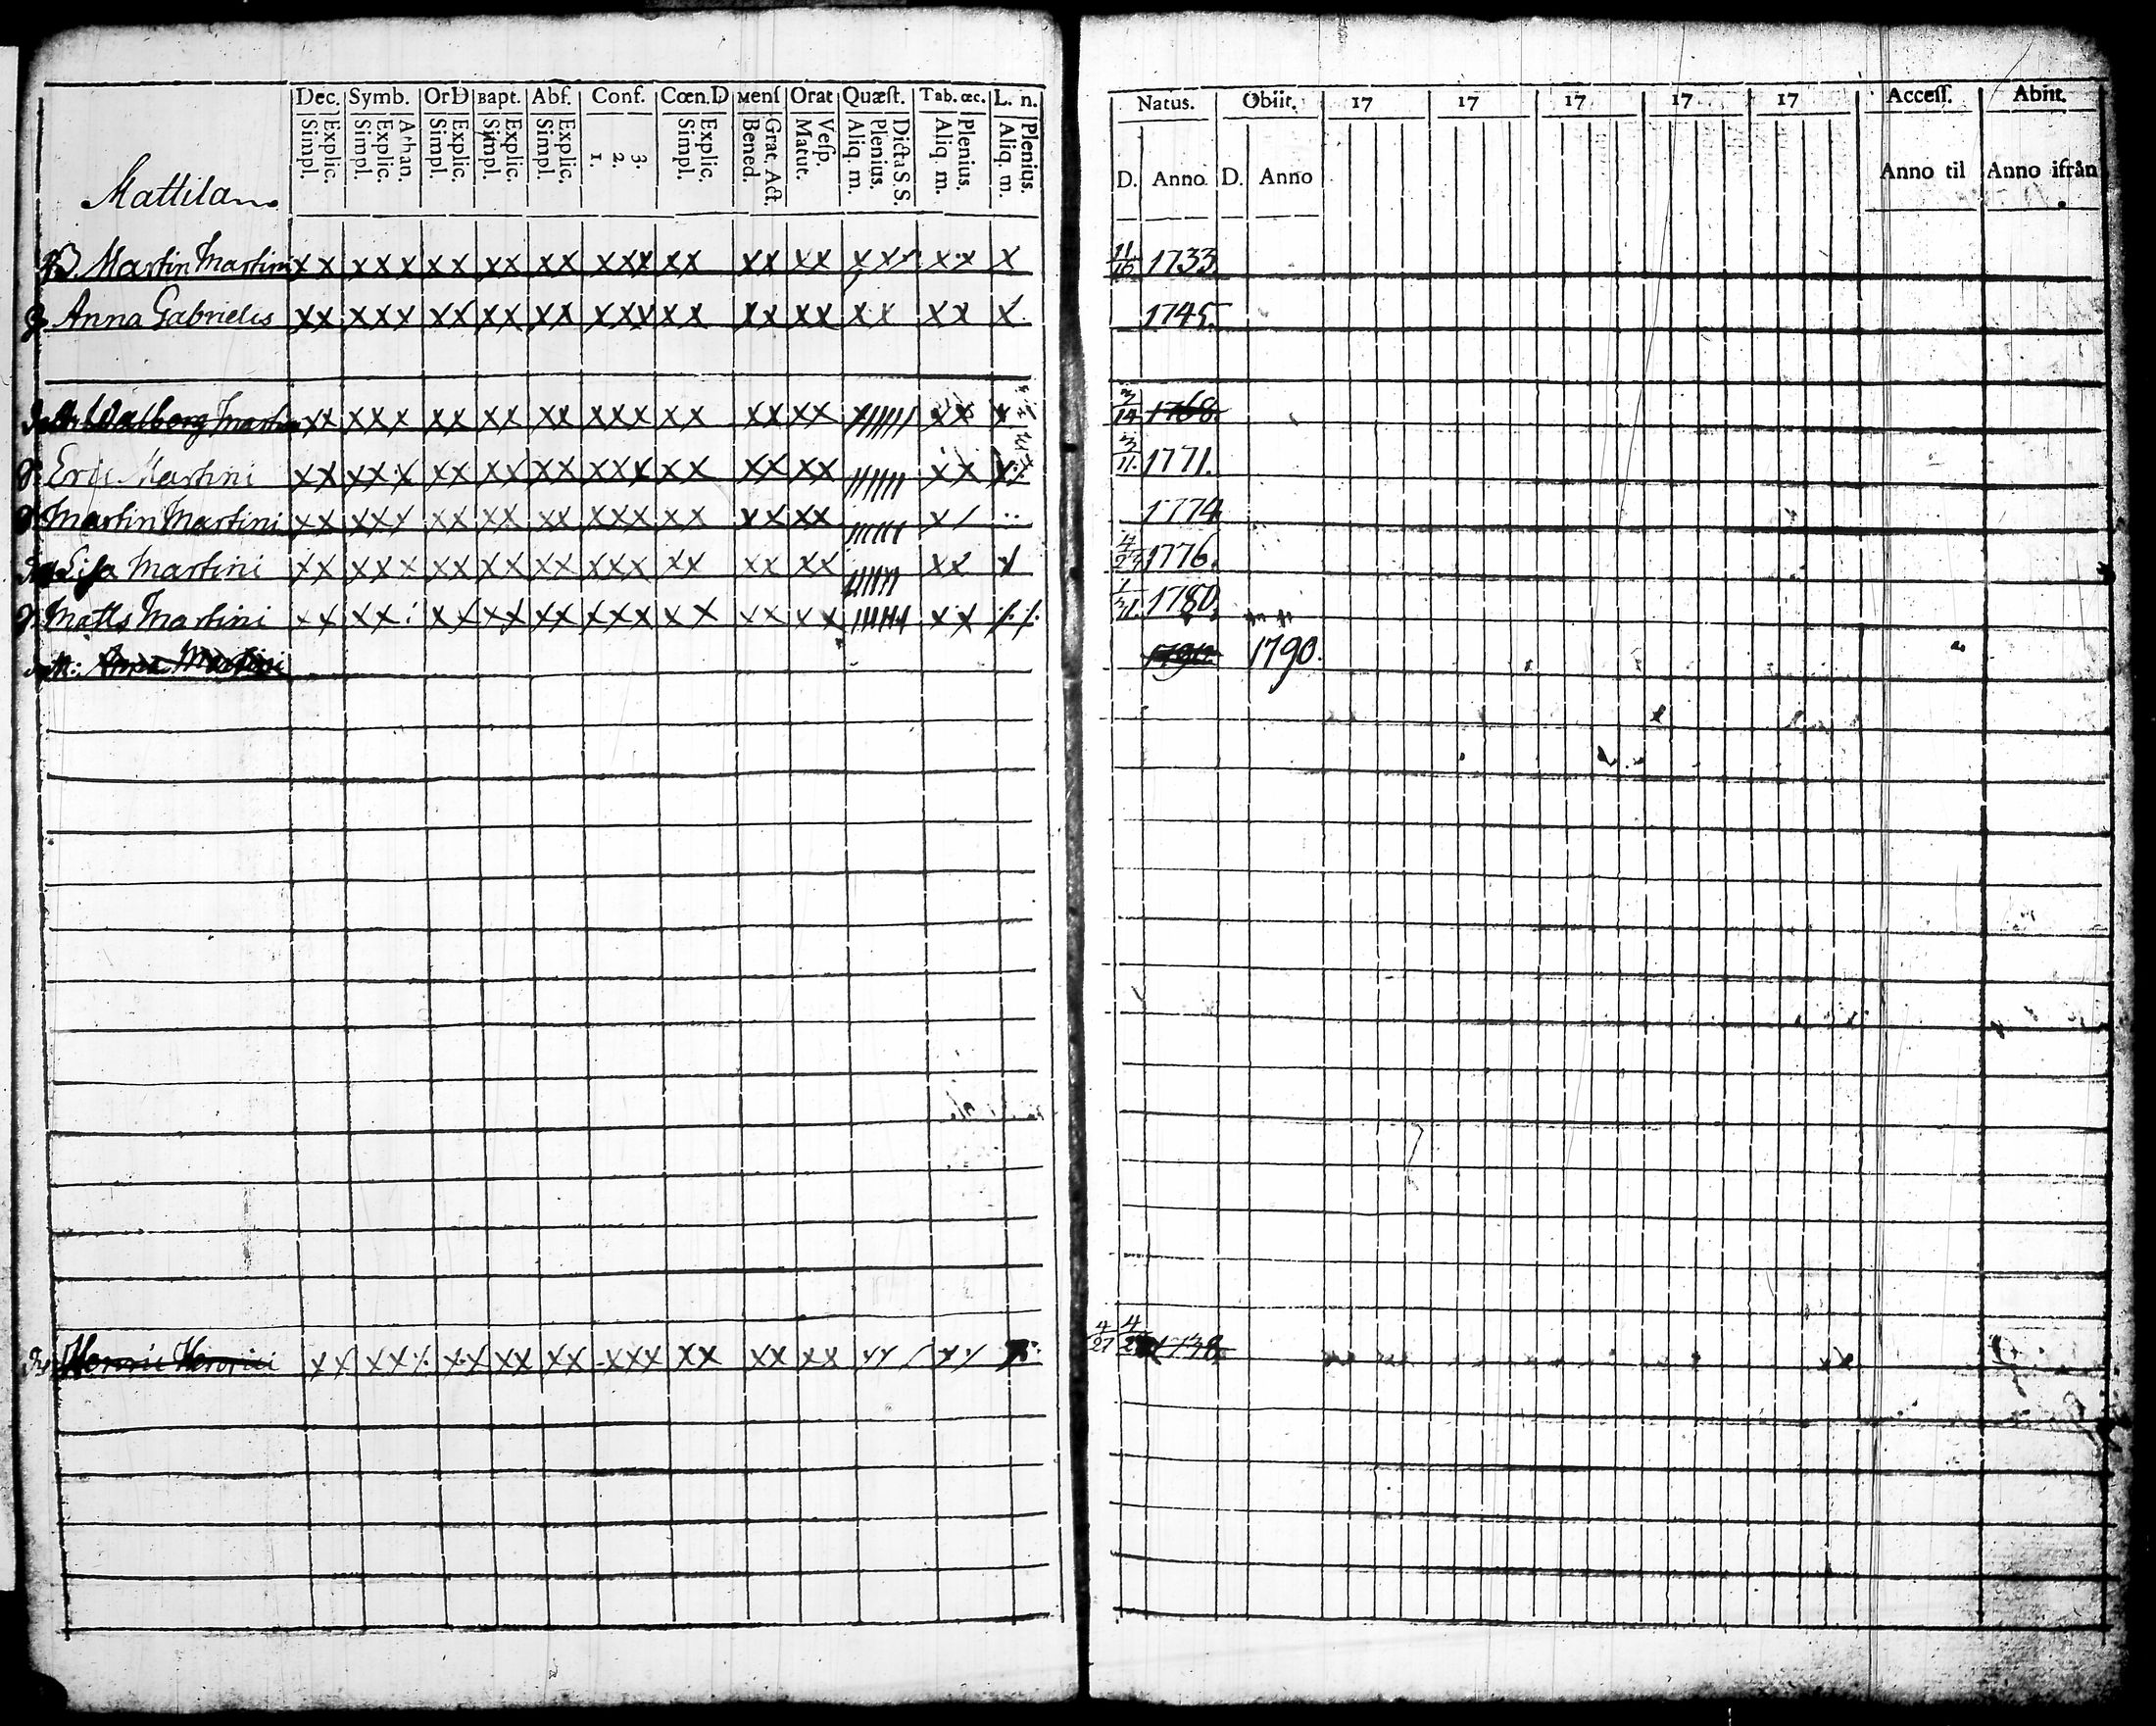 Dec. Symb. OrD Bapt. Abſ. Conf. Cœn.D Menſ Orat Quæſt. Tab. œc. L. n.
Simpl. Explic. Simpl. Explic. Athan. Simpl. Explic. Simpl. Explic. Simpl. Explic. 1. 2. 3. Simpl. Explic. Bened. Grat. Act. Matut. Veſp. Aliq. m. Plenius. Dicta S.S. Aliq. m. Plenius. Aliq. m. Plenius.
Mattila
Natus. Obiit. 17 17 17 17 17 Acceſſ. Abiit.
D. Anno D. Anno Anno til Anno ifrån
B. Martin Martini x x x x x x x x x x x x x x x x x x x x x x x x x 11/10 1733
Anna Gabrielis x x x x x x x x x x x x x x x x x x x x x x x x 1745.
Walborg Martini x x x x x x x x x x x x x x x x x x x x x x x 3/14 1768.
Eric Martini x x x x x x x x x x x x x x x x x x x x x x 3/11. 1771.
Martin Martini x x x x x x x x x x x x x x x x x x x 1774
Lisa Martini x x x x x x x x x x x x x x x x x x x x x x 4/27 1776.
Matts Martini x x x x x x x x x x x x x x x x x x x x 1/31. 1780.
Anna Martini 1790. 1790.
Henric Henrici x x x x x x x x x x x x x x x x x x x x x x 4/27 4 1738.